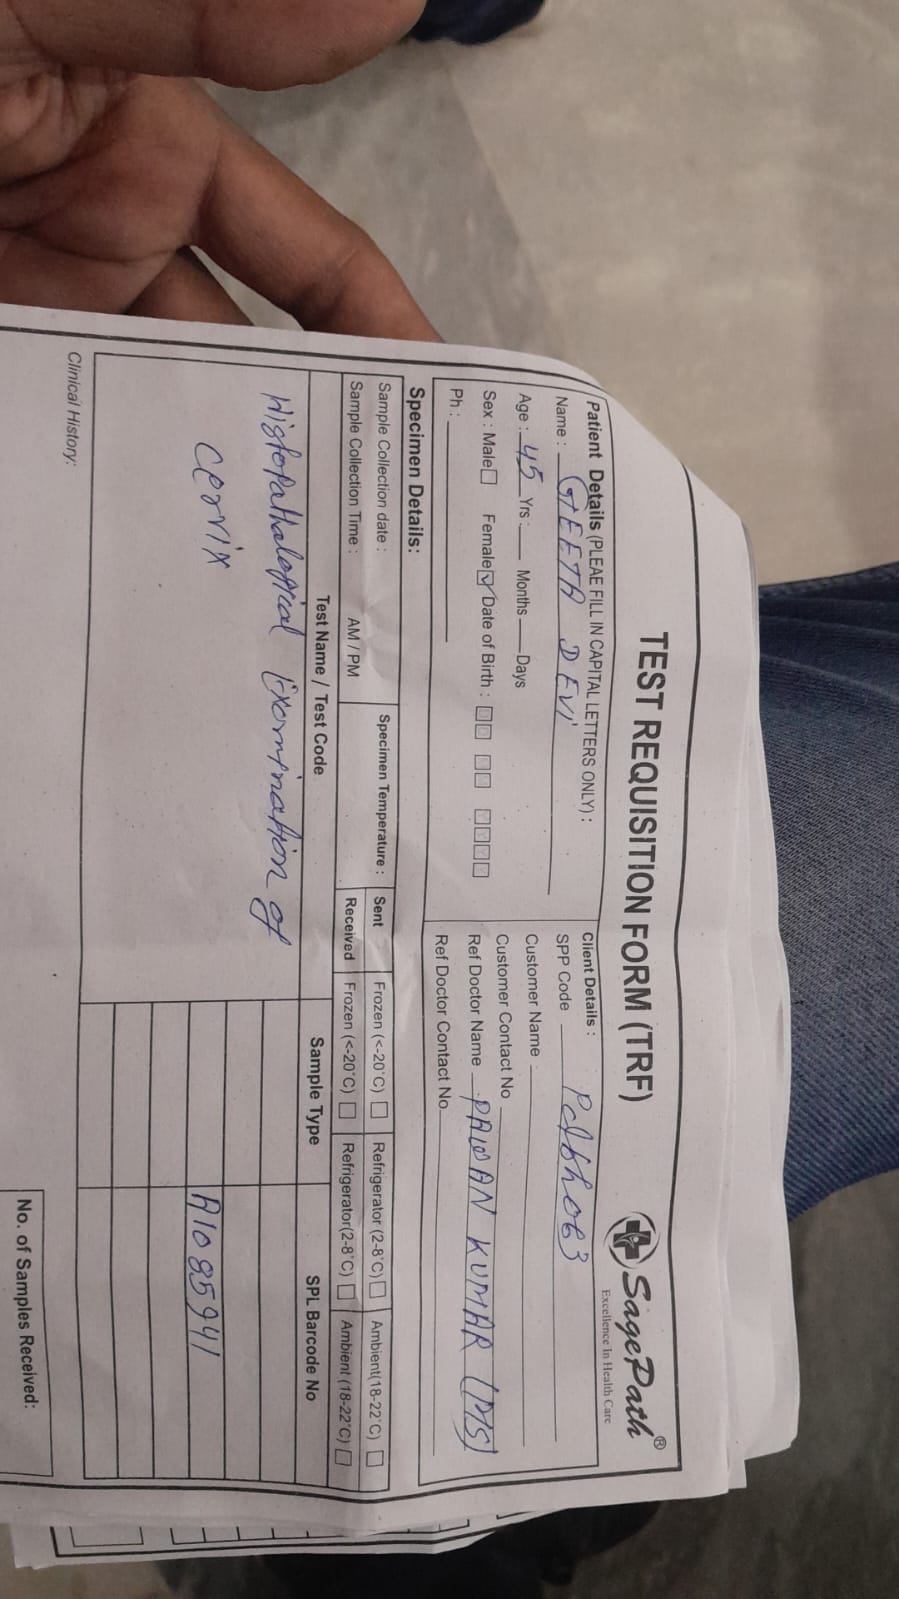 TEST REQUISITION FORM (TRF)
SagePath®
Excellence In Health Care
Patient Details (PLEAE FILL IN CAPITAL LETTERS ONLY) :
Name : GEETA DEVI
Age : 45 Yrs : Months Days
Sex : Male Female Date of Birth :
Ph :
Client Details :
SPP Code
Customer Name
Customer Contact No
Ref Doctor Name PAWAN KUMAR (MS)
Ref Doctor Contact No
Specimen Details:
Sample Collection date : Specimen Temperature : Sent Frozen (<-20°C) Refrigerator (2-8°C) Ambient(18-22°C)
Sample Collection Time : AM / PM Received Frozen (<-20°C) Refrigerator(2-8°C) Ambient (18-22°C)
Test Name / Test Code Sample Type SPL Barcode No
Histopathalogical Examination of
cervix
A1085941
Clinical History:
No. of Samples Received: